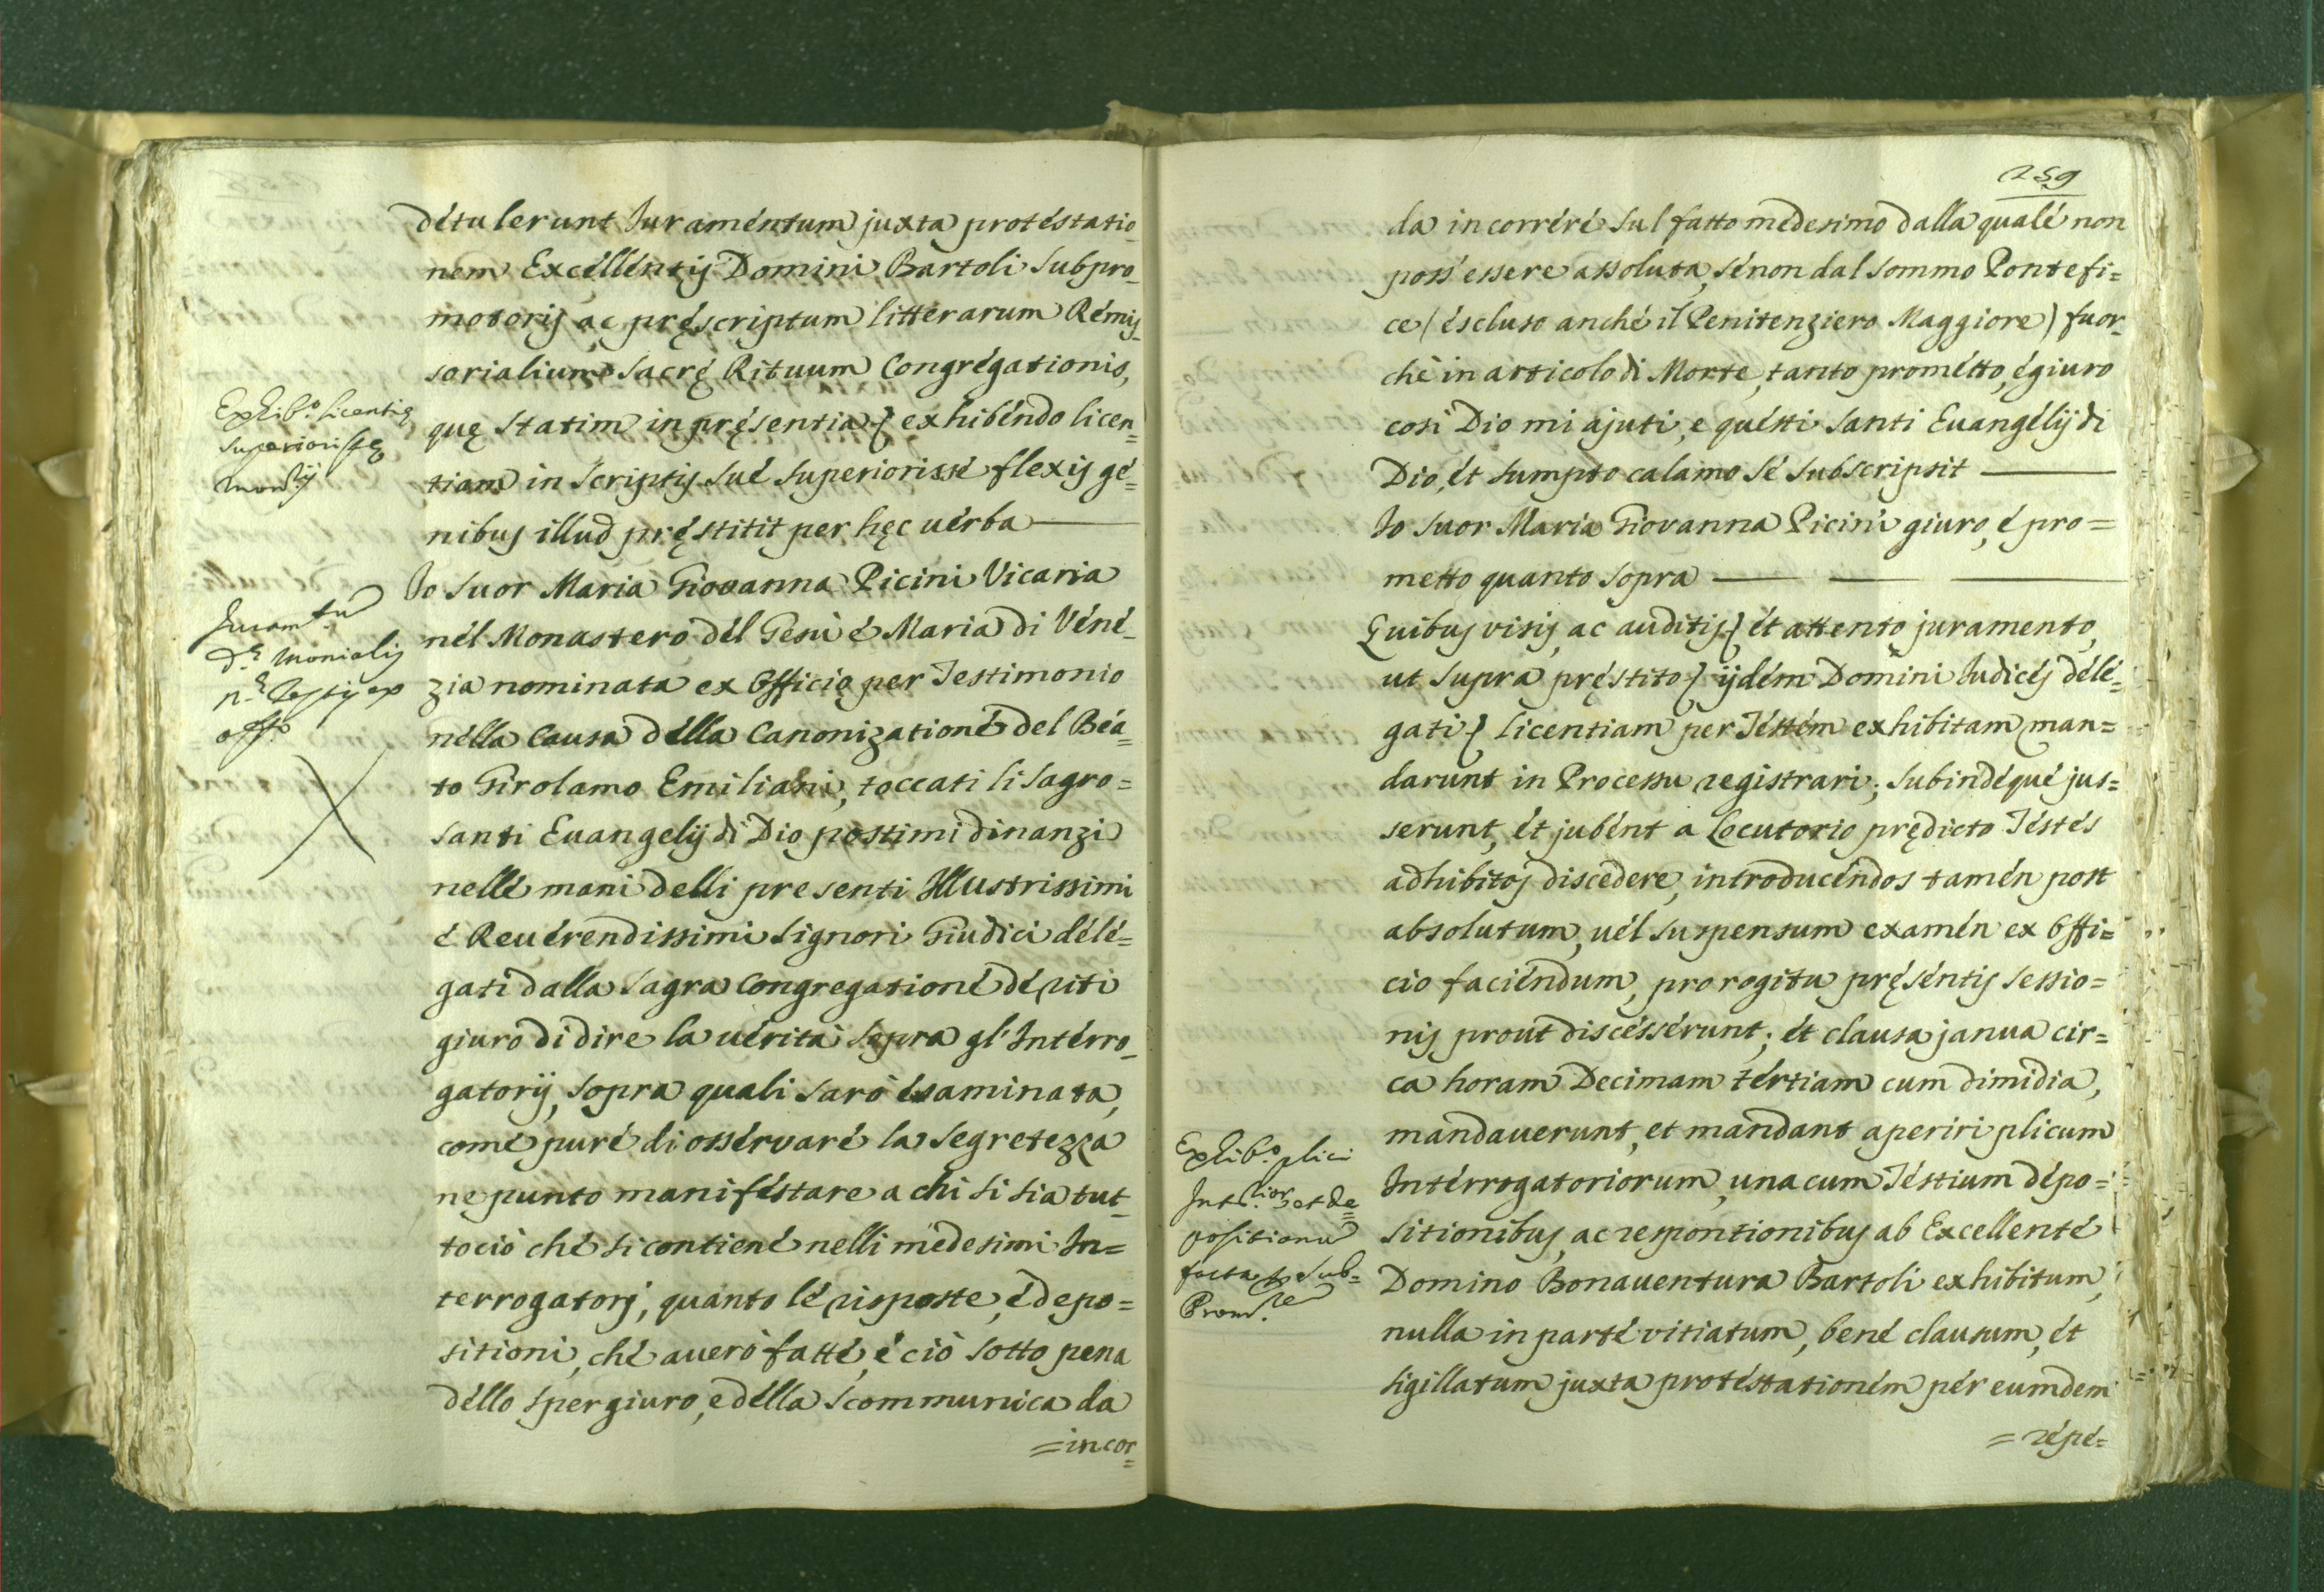 détulerunt Juraméntum juxta protéstatio_
nem Excéllentij Domini Bartoli Subpro_
motorij ac pręscriptum litterarum Rémij_
sorialium sacrę Rituum Congrégationis,
Exhib.o licentię
superiorissę
quę statim in pręsentia { exhibéndo licen_
tiam in scriptij sué superiorissé flexij gé=
nibuj illud pręstitit per hęc uérba
Juram.tu
d.ę monialij
p.ę Testij ex
off.o
Jo Suor Maria Giovanna Picini Vicaria
nél Monastero dél Gesù é Maria di Véné_
zia nominata ex Officio per Testimonio
nélla Causa délla Canonizationé del Béa=
to Girolamo Emiliani, toccati li sagro=
santi Euangelij di Dio postimi dinanzi
nellé mani delli presenti Illustrissimi
é Reuérendissimi Signori Giudici délé=
gati dalla sagra Congregationé dé riti
giuro di dire la uérità sopra gl'Intérro_
gatorij, sopra quali sarò ésaminata,
comé puré di osséruaré la segretezza
ne punto maniféstare a chi si sia tut_
tociò ché si contiené nelli medesimi In=
terrogatorj, quanto lé risposte, é depo=
sitioni, ché auerò fatté, é ciò sotto pena
déllo spergiuro, e délla scommunica da
=incor=
259
da incorréré sul fatto medesimo dalla qualé non
poss'essere assoluta, sénon dal sommo Pontefi=
ce (éscluso anché il Penitenziero Maggiore) fuor_
chè in articolo di Morte, tanto prométto, é giuro
così Dio mi ajuti, e quésti santi Euangélij di
Dio, ét sumpto calamo sé subscripsit
Jo Suor Maria Giovanna Picini giuro, é pro=
metto quanto sopra
Quibuj visij, ac auditij { ét attento juramento,
ut supra pręstito } ijdém Domini Judicéj délé=
gati { licentiam per Téstém exhibitam man=
darunt in Processu registrari; subindéqué jus=
serunt, ét jubént a Locutorio prędicto Téstés
adhibitoj discedere, introducéndos tamén post
absolutum, uél suspensum examén ex Offi=
cio faciéndum, pro rogitu pręséntij sessio=
nij prout discéssérunt; ét clausa janua cir=
ca horam Decimam tértiam cum dimidia,
mandauerunt, et mandant aperiri plicum
Exhib.o plici
Int.rior. et de=
positionu
facta p Sub=
Prom.re
Intérrogatoriorum, una cum Téstium dépo=
sitionibuj, ac responsionibuj ab Excellenté
Domino Bonauentura Bartoli exhibitum,
nulla in parté vitiatum, bené clausum, ét
sigillatum juxta protéstationém pér eumdem
=répé=